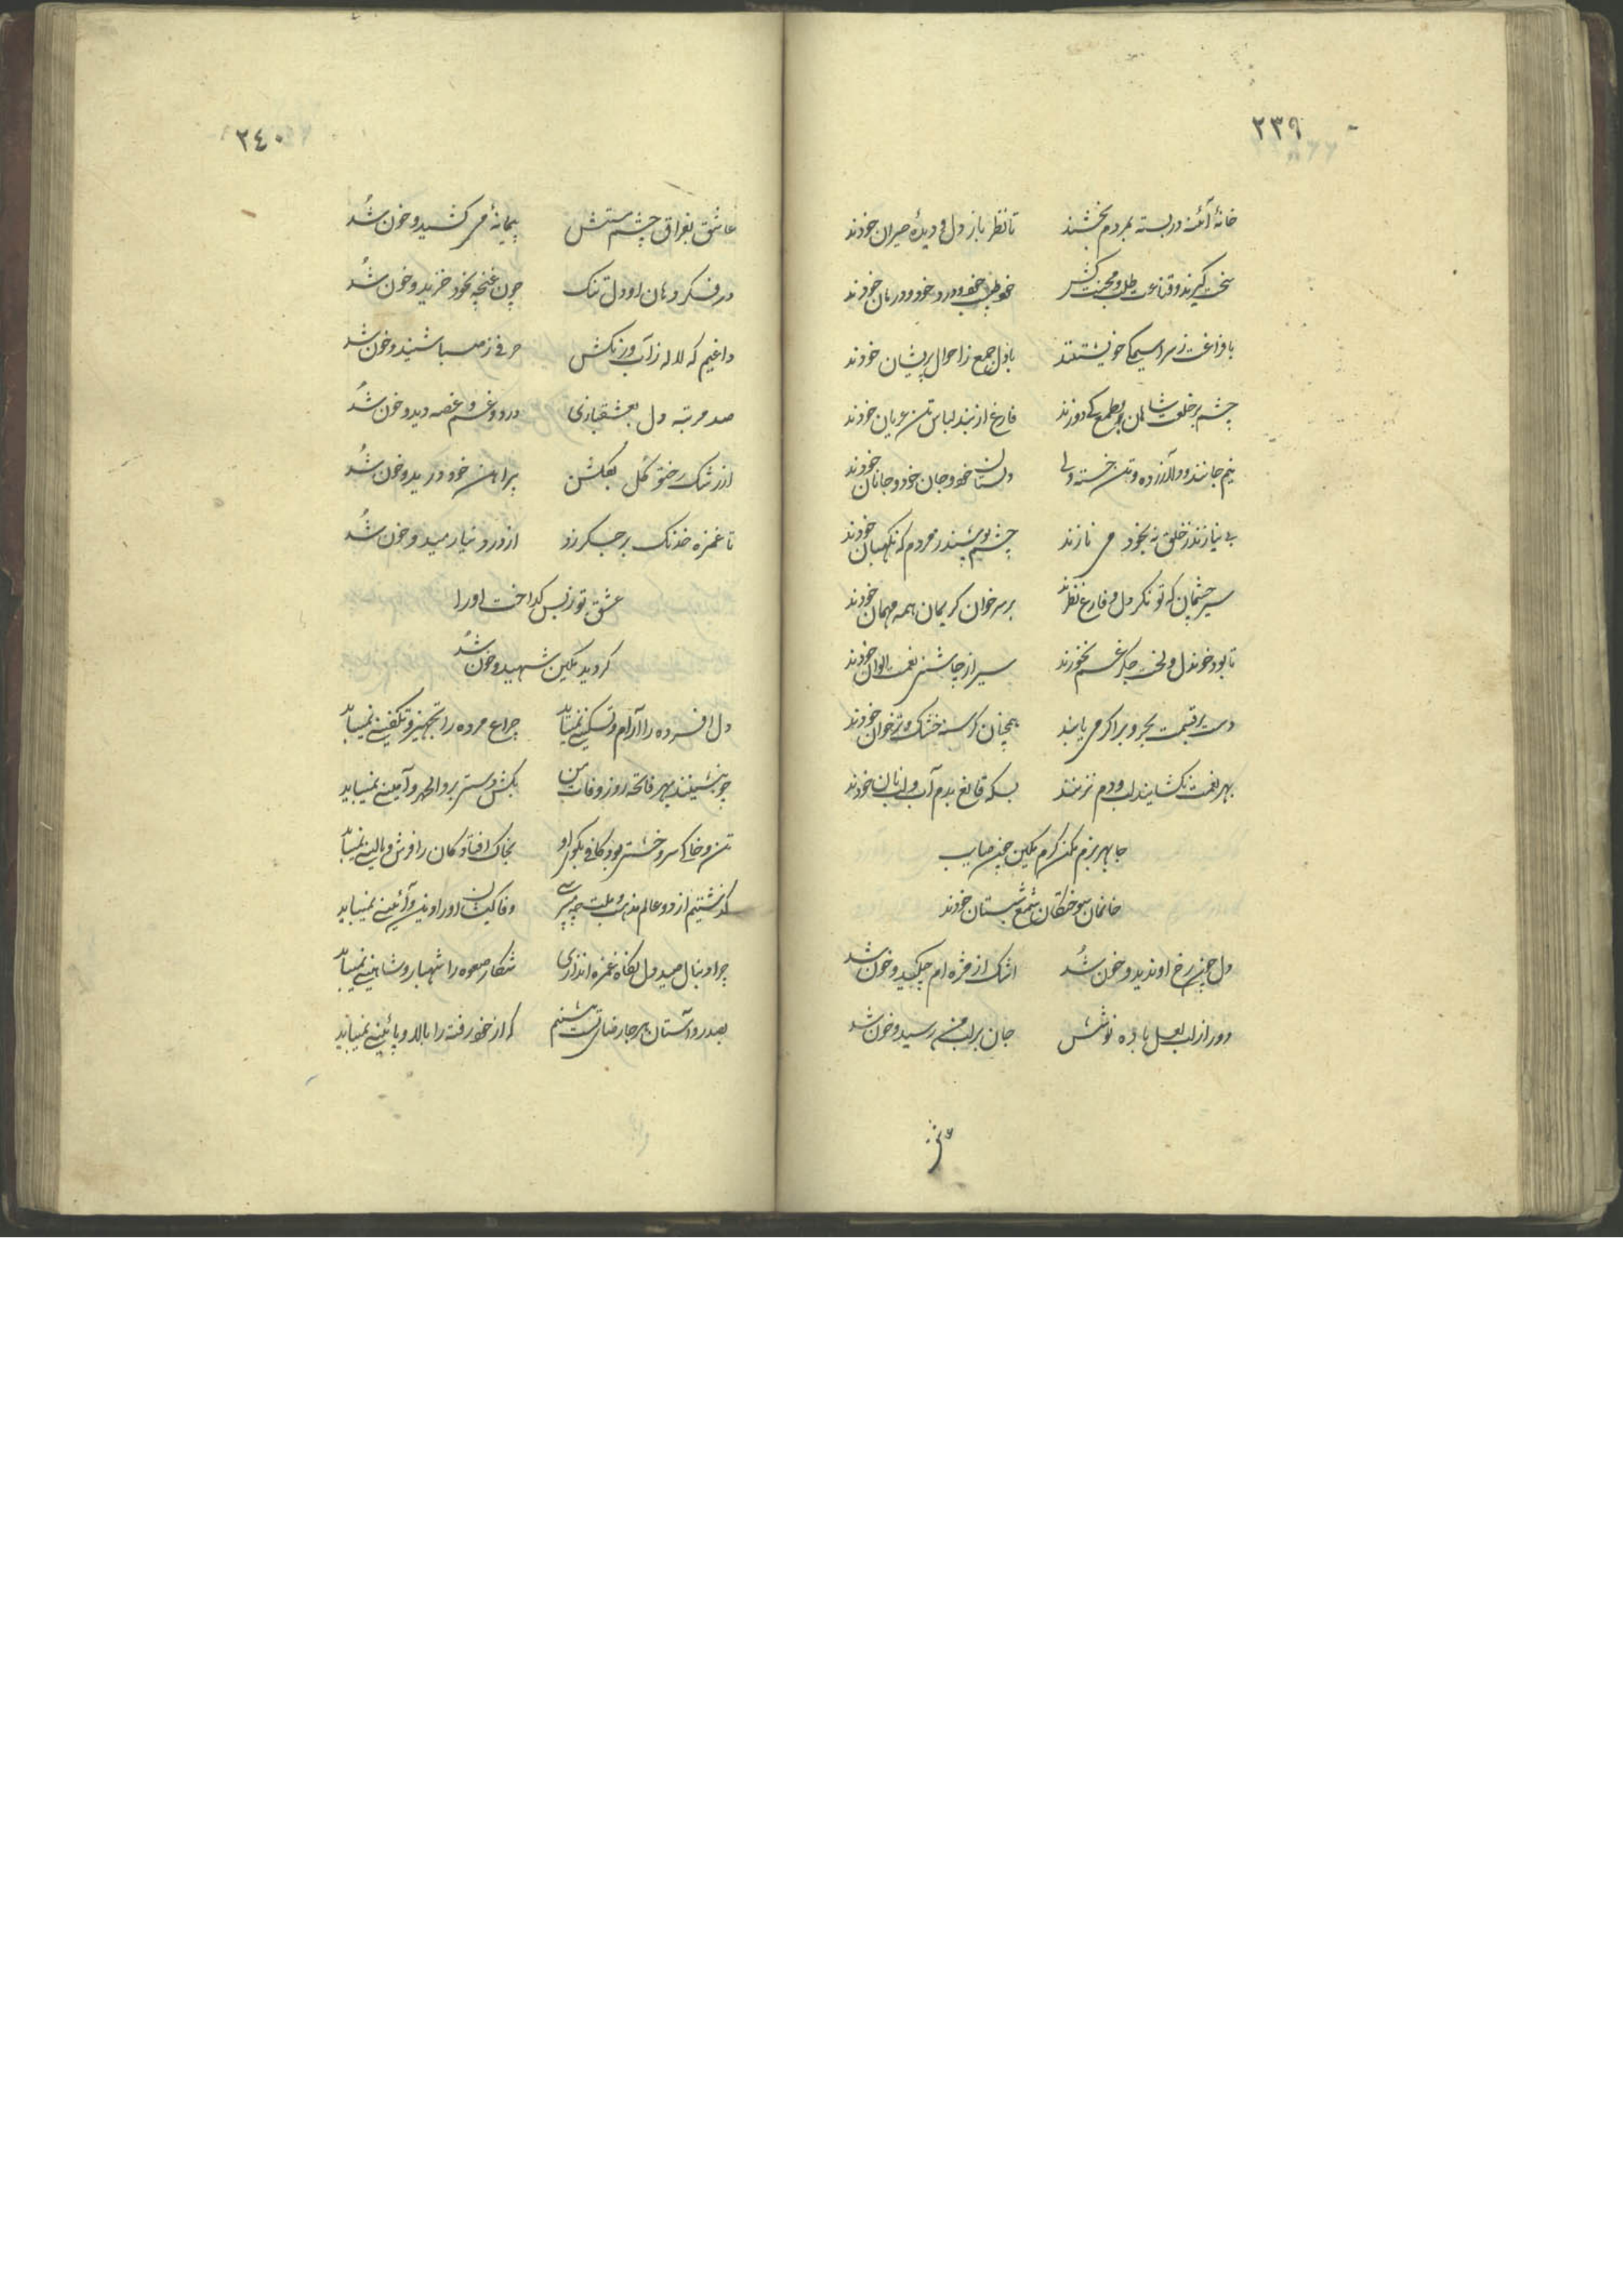 ٢٣٩
خانهٔ آئنه در بسته بمردم بخشند تا نظر باز دل و دیدهٔ حیران خودند
سخت گیرند و قناعت طلب و محنت کش خود طبیب خود و درد خود و درمان خودند
با فراغت ز سراسیمگی خویشتنند با دل جمع ز احوال پریشان خودند
چشم بر خلعت شاهان بطمع کی دوزند فارغ از بند لباس تن عریان خودند
نیم جانند و دلآزرده و تن خسته ولی دلستان خود و جان خود و جانان خودند
بی نیازند ز خلق نه بخود می نازند چشم پوشند ز مردم که نگهبان خودند
سیر چشمان که توانگر دل و فارغ نظرند بر سر خوان کریمان همه مهمان خودند
تا بود خوندل و لخت جگر غم نخورند سیر از چاشنی نعمت الوان خودند
دست بر قیمت بحر و بر اگر می یابند همچنان گرسنه خشک و تر خوان خودند
بهر نعمت نگشایند لب و دم نزنند بسکه قانع بدم آب و لب نان خودند
جا بهر بزم مکن گرم مکین چین صاحب
خانمان سوختگان شمع شبستان خودند
دل چین رخ او ندید و خون شد اشک از مژه ام چکید و خون شد
دور از لب لعل باده نوشش جان بر لب من رسید و خون شد
٢٤٠
عاشق بفراق چشم مستش پیمانهٔ می کشید و خون شد
در فکر دهان او دل تنگ چون غنچه بخود خزید و خون شد
داغیم که لاله ز آب و رنگش حرفی ز صبا شنید و خون شد
صد مرتبه دل بعشقبازی درد و غم و غصه دید و خون شد
از رشک رخ تو گل بگلشن پیراهن خود درید و خون شد
تا غمزه خدنگ بر جگر زد از درد نیارمید و خون شد
عشق تو ز بس گداخت او را
گردید مکین شهید و خون شد
دل افسرده را آرام و تسکینی نمیباید چراغ مرده را تجهیز و تکفینی نمیباید
چو بنشینند بهر فاتحه روز وفات من بکش دستی برو الحمد و آمینی نمیباید
تن و خاکی سر و خشتی بود کافی بگور او بخاک افتادگان را فرش و بالینی نمیباید
گذشتیم از دو عالم مذهب و ملت چه میپرسی وفا کیشان او را دین و آئینی نمیباید
چرا دنبال صید دل نگاه غمزه اندازی شکار صعوه را شهباز و شاهینی نمیباید
بصدر و آستان هر جا رضای تست بنشینم که از خود رفته را بالا و پائینی نمیباید